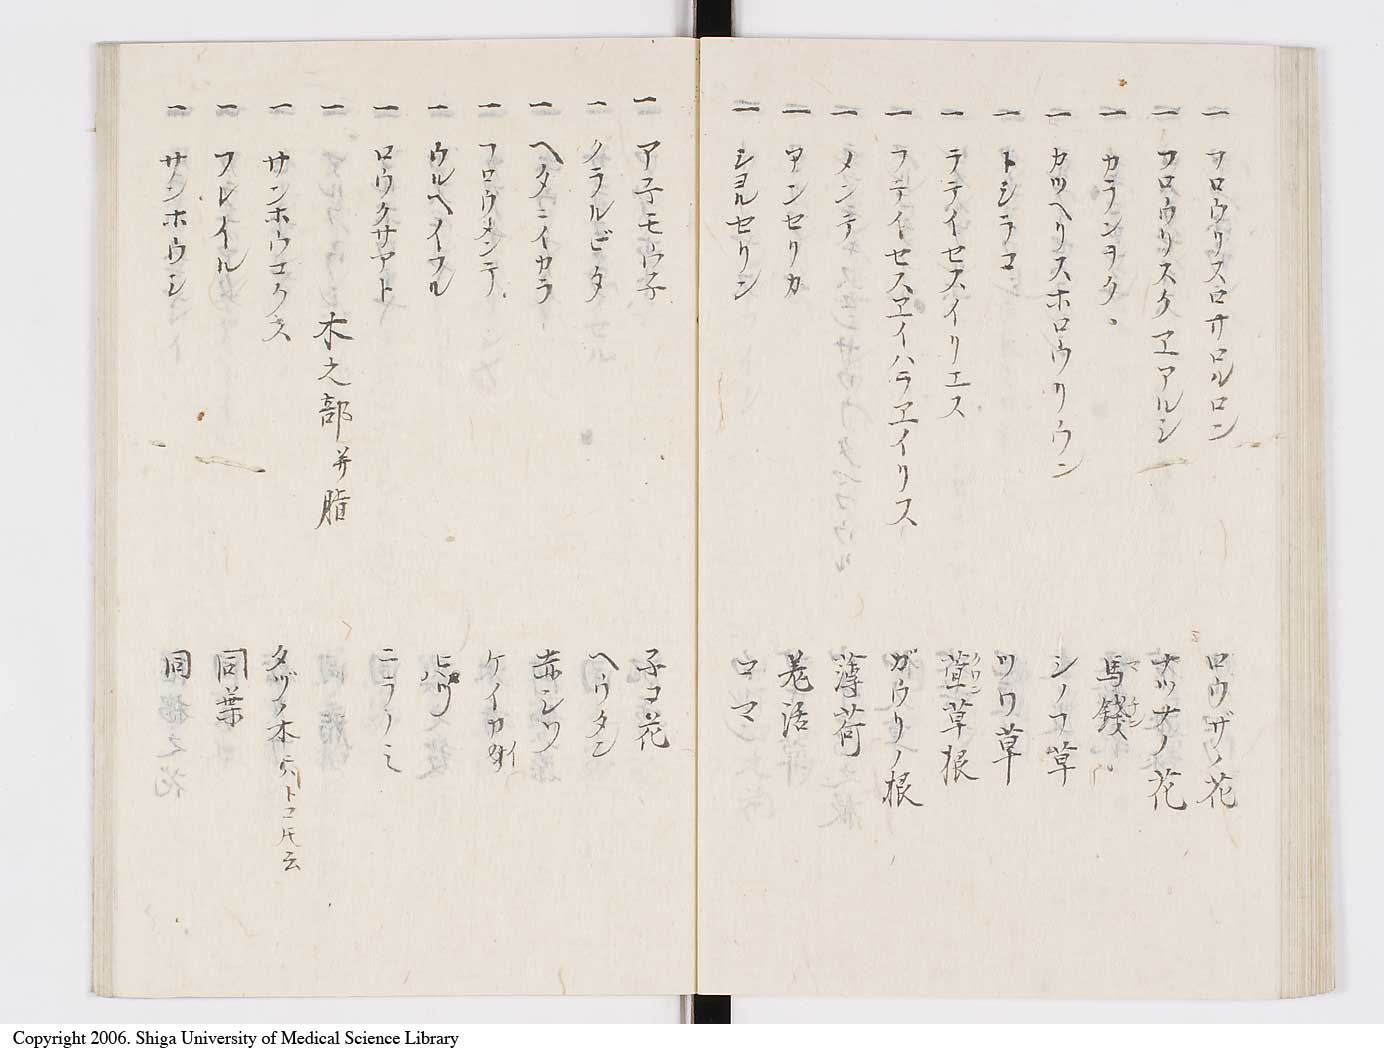 一 フロウリスロサロルロン ロウザノ花
一 フロウリスケヱアルシ ナツナノ花
一 カランヲク 馬錢 マチン
一 カツヘリスホロウリウン シノフ草
一 トシラコ ツワ草
一 ラテイセスイリエス 萱草根 クワンソウ
一 ラテイセスヱイハラヱイリス ガウリノ根
一 メンテ 薄荷
一 アンセリカ 羌活
一 シヨルセリン コマ
一 ア子モウ子 子コ花
一 ノラルビタ ヘウタン
一 ヘタニイカラ 赤シツ
一 フロウメンテ ケイカイ
一 ウルヘイフル
一 ロウクサアト ニラノミ
木之部 并脂
一 サンホウコクス タヅノ木 ニハトコ氏云
一 フレイル 同葉
一 サンホウシ 同
Copyright 2006. Shiga University of Medical Science Library